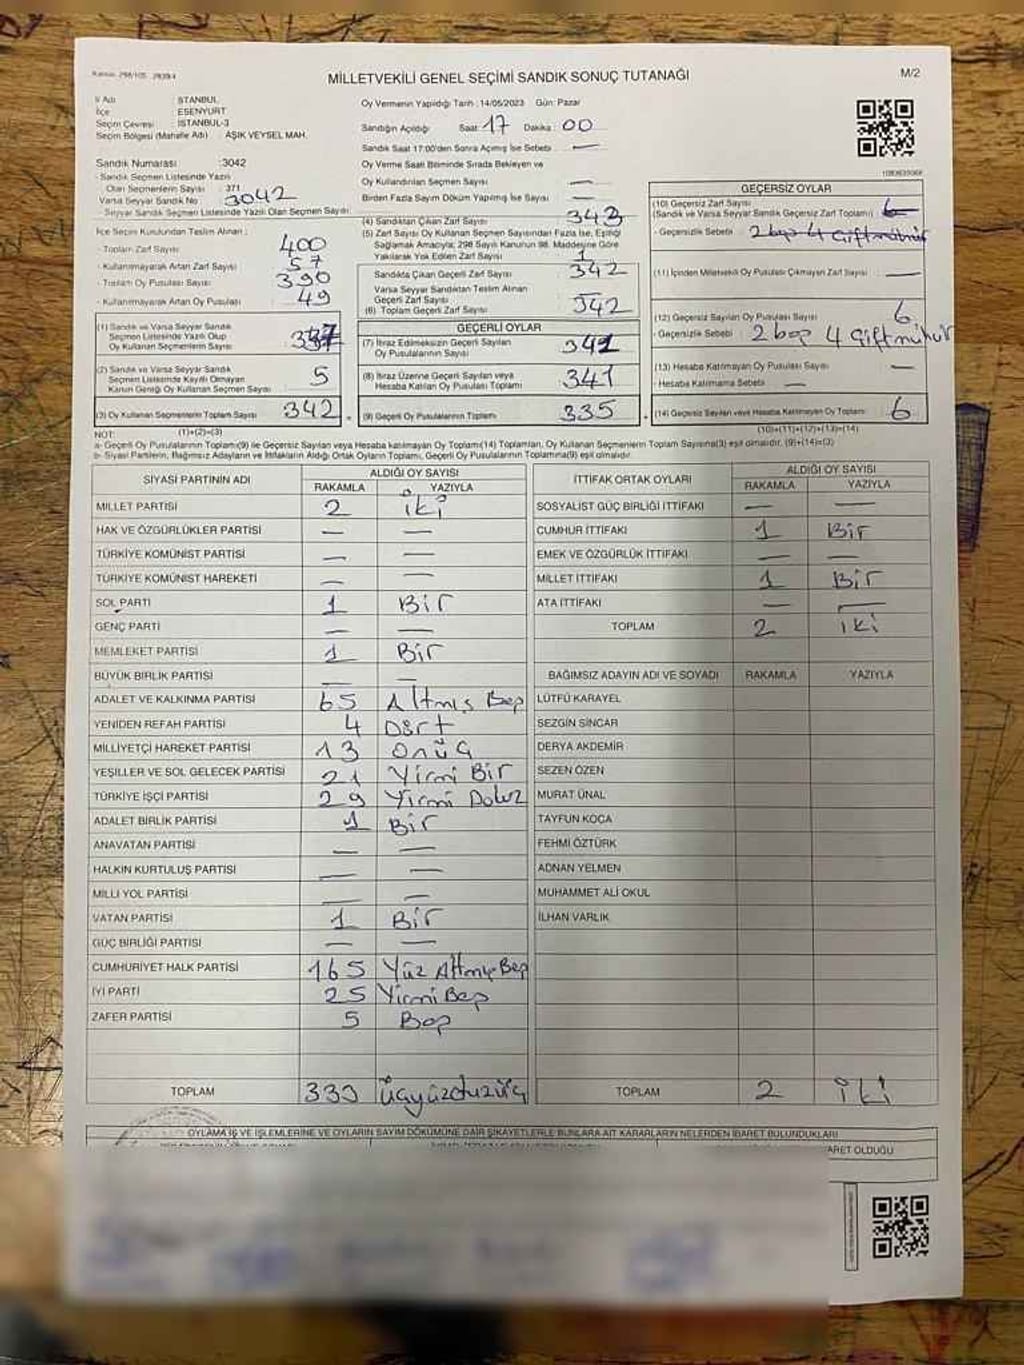 MİLLETVEKİLİ GENEL SEÇİMİ SANDIK SONUÇ TUTANAĞI
M/2
İl Adı : İSTANBUL
İlçe : ESENYURT
Seçim Çevresi : İSTANBUL-3
Seçim Bölgesi (Mahalle Adı) : AŞIK VEYSEL MAH.
Sandık Numarası : 3042
- Sandık Seçmen Listesinde Yazılı
Olan Seçmenlerin Sayısı : 371
Varsa Seyyar Sandık No : 3042
- Seyyar Sandık Seçmen Listesinde Yazılı Olan Seçmen Sayısı:
İlçe Seçim Kurulundan Teslim Alınan ;
- Toplam Zarf Sayısı : 400
- Kullanılmayarak Artan Zarf Sayısı : 57
- Toplam Oy Pusulası Sayısı : 390
- Kullanılmayarak Artan Oy Pusulası : 49
(1) Sandık ve Varsa Seyyar Sandık
Seçmen Listesinde Yazılı Olup
Oy Kullanan Seçmenlerin Sayısı : 337
(2) Sandık ve Varsa Seyyar Sandık
Seçmen Listesinde Kayıtlı Olmayan
Kanun Gereği Oy Kullanan Seçmen Sayısı 5
(3) Oy Kullanan Seçmenlerin Toplam Sayısı 342
(1)+(2)=(3)
Oy Vermenin Yapıldığı Tarih : 14/05/2023 Gün: Pazar
Sandığın Açıldığı Saat : 17 Dakika : 00
Sandık Saat 17:00'den Sonra Açılmış İse Sebebi : —
Oy Verme Saati Bitiminde Sırada Bekleyen ve
Oy Kullandırılan Seçmen Sayısı —
Birden Fazla Sayım Döküm Yapılmış İse Sayısı : —
(4) Sandıktan Çıkan Zarf Sayısı : 343
(5) Zarf Sayısı Oy Kullanan Seçmen Sayısından Fazla İse, Eşitliği
Sağlamak Amacıyla; 298 Sayılı Kanunun 98. Maddesine Göre
Yakılarak Yok Edilen Zarf Sayısı : 1
Sandıkta Çıkan Geçerli Zarf Sayısı : 342
Varsa Seyyar Sandıktan Teslim Alınan
Geçerli Zarf Sayısı :
(6) Toplam Geçerli Zarf Sayısı : 342
GEÇERLİ OYLAR
(7) İtiraz Edilmeksizin Geçerli Sayılan
Oy Pusulalarının Sayısı : 341
(8) İtiraz Üzerine Geçerli Sayılan veya
Hesaba Katılan Oy Pusulası Toplamı : 341
(9) Geçerli Oy Pusulalarının Toplamı : 335
GEÇERSİZ OYLAR
(10) Geçersiz Zarf Sayısı
(Sandık ve Varsa Seyyar Sandık Geçersiz Zarf Toplamı) : 6
- Geçersizlik Sebebi : 2 boş 4 Çiftmühür
(11) İçinden Milletvekili Oy Pusulası Çıkmayan Zarf Sayısı : —
(12) Geçersiz Sayılan Oy Pusulası Sayısı : 6
- Geçersizlik Sebebi : 2 boş 4 Çiftmühür
(13) Hesaba Katılmayan Oy Pusulası Sayısı : —
- Hesaba Katılmama Sebebi : —
(14) Geçersiz Sayılan veya Hesaba Katılmayan Oy Toplamı : 6
(10)+(11)+(12)+(13)=(14)
NOT:
a- Geçerli Oy Pusulalarının Toplamı(9) ile Geçersiz Sayılan veya Hesaba katılmayan Oy Toplamı(14) Toplamları, Oy Kullanan Seçmenlerin Toplam Sayısına(3) eşit olmalıdır. (9)+(14)=(3)
b- Siyasi Partilerin, Bağımsız Adayların ve İttifakların Aldığı Ortak Oyların Toplamı, Geçerli Oy Pusulalarının Toplamına(9) eşit olmalıdır.
SİYASİ PARTİNİN ADI ALDIĞI OY SAYISI
RAKAMLA YAZIYLA
MİLLET PARTİSİ 2 iki
HAK VE ÖZGÜRLÜKLER PARTİSİ — —
TÜRKİYE KOMÜNİST PARTİSİ — —
TÜRKİYE KOMÜNİST HAREKETİ — —
SOL PARTİ 1 Bir
GENÇ PARTİ — —
MEMLEKET PARTİSİ 1 Bir
BÜYÜK BİRLİK PARTİSİ — —
ADALET VE KALKINMA PARTİSİ 65 Altmış Beş
YENİDEN REFAH PARTİSİ 4 Dört
MİLLİYETÇİ HAREKET PARTİSİ 13 Onüç
YEŞİLLER VE SOL GELECEK PARTİSİ 21 Yirmi Bir
TÜRKİYE İŞÇİ PARTİSİ 29 Yirmi Dokuz
ADALET BİRLİK PARTİSİ 1 Bir
ANAVATAN PARTİSİ — —
HALKIN KURTULUŞ PARTİSİ — —
MİLLİ YOL PARTİSİ — —
VATAN PARTİSİ 1 Bir
GÜÇ BİRLİĞİ PARTİSİ — —
CUMHURİYET HALK PARTİSİ 165 Yüz Altmış Beş
İYİ PARTİ 25 Yirmi Beş
ZAFER PARTİSİ 5 Beş
TOPLAM 333 üçyüzotuzüç
İTTİFAK ORTAK OYLARI ALDIĞI OY SAYISI
RAKAMLA YAZIYLA
SOSYALİST GÜÇ BİRLİĞİ İTTİFAKI — —
CUMHUR İTTİFAKI 1 Bir
EMEK VE ÖZGÜRLÜK İTTİFAKI — —
MİLLET İTTİFAKI 1 Bir
ATA İTTİFAKI — —
TOPLAM 2 iki
BAĞIMSIZ ADAYIN ADI VE SOYADI RAKAMLA YAZIYLA
LÜTFÜ KARAYEL
SEZGİN SİNCAR
DERYA AKDEMİR
SEZEN ÖZEN
MURAT ÜNAL
TAYFUN KOCA
FEHMİ ÖZTÜRK
ADNAN YELMEN
MUHAMMET ALİ OKUL
İLHAN VARLIK
TOPLAM 2 iki
OYLAMA İŞ VE İŞLEMLERİNE VE OYLARIN SAYIM DÖKÜMÜNE DAİR ŞİKAYETLERLE BUNLARA AİT KARARLARIN NELERDEN İBARET BULUNDUKLARI
ARET OLDUĞU